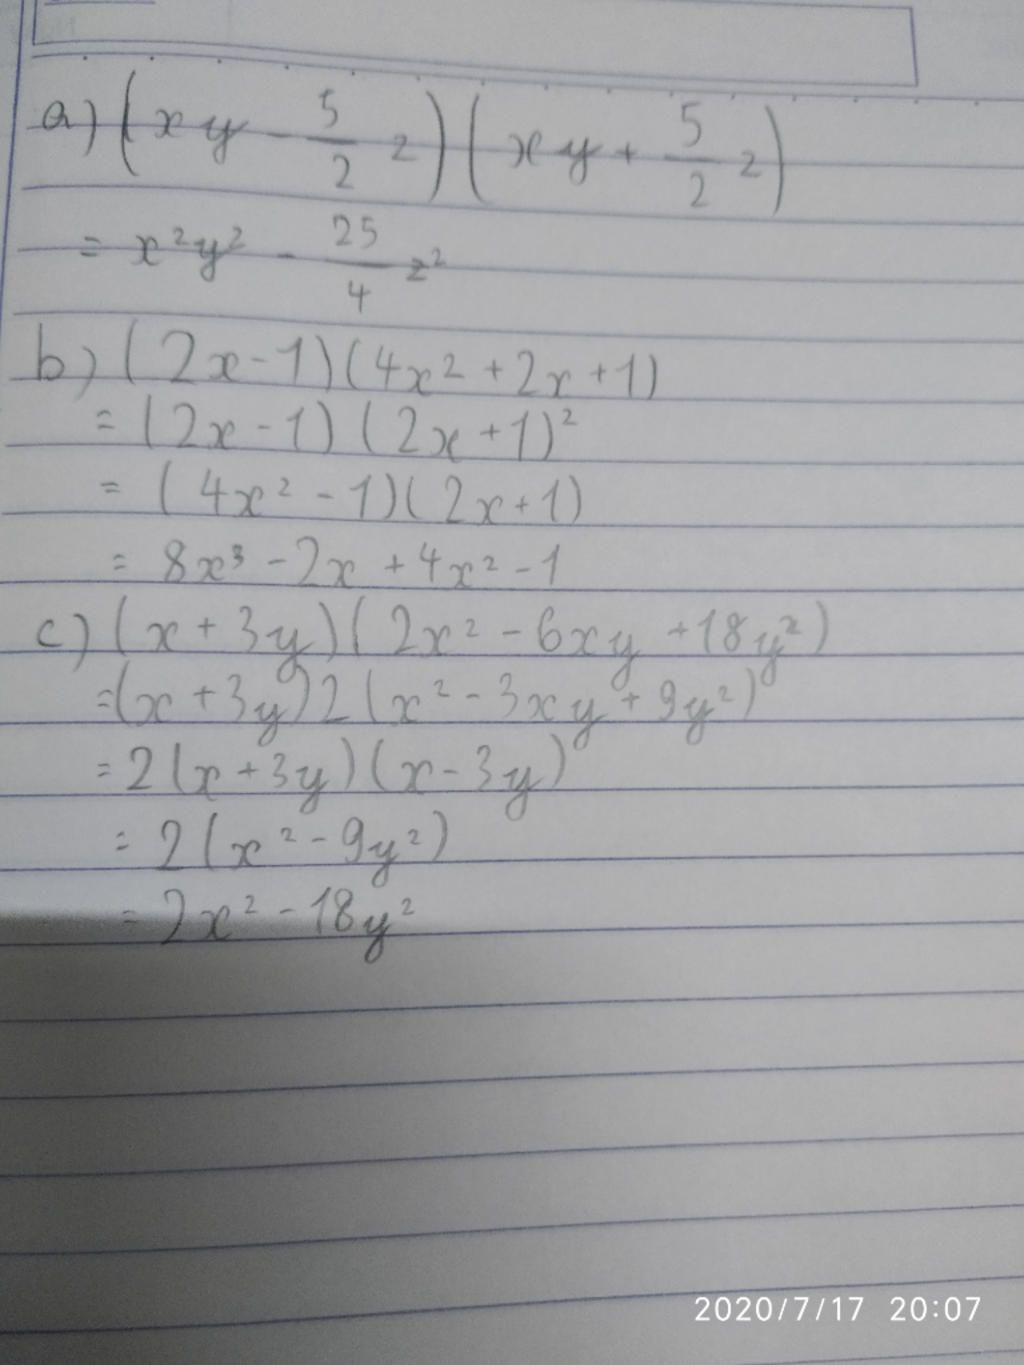 a) (xy - 5/2 z) (xy + 5/2 z)
= x²y² - 25/4 z²
b) (2x-1)(4x²+2x+1)
= (2x-1)(2x+1)²
= (4x²-1)(2x+1)
= 8x³-2x+4x²-1
c) (x+3y)(2x²-6xy+18y²)
=(x+3y)2(x²-3xy+9y²)
= 2(x+3y)(x-3y)
= 2(x²-9y²)
= 2x²-18y²
2020/7/17 20:07